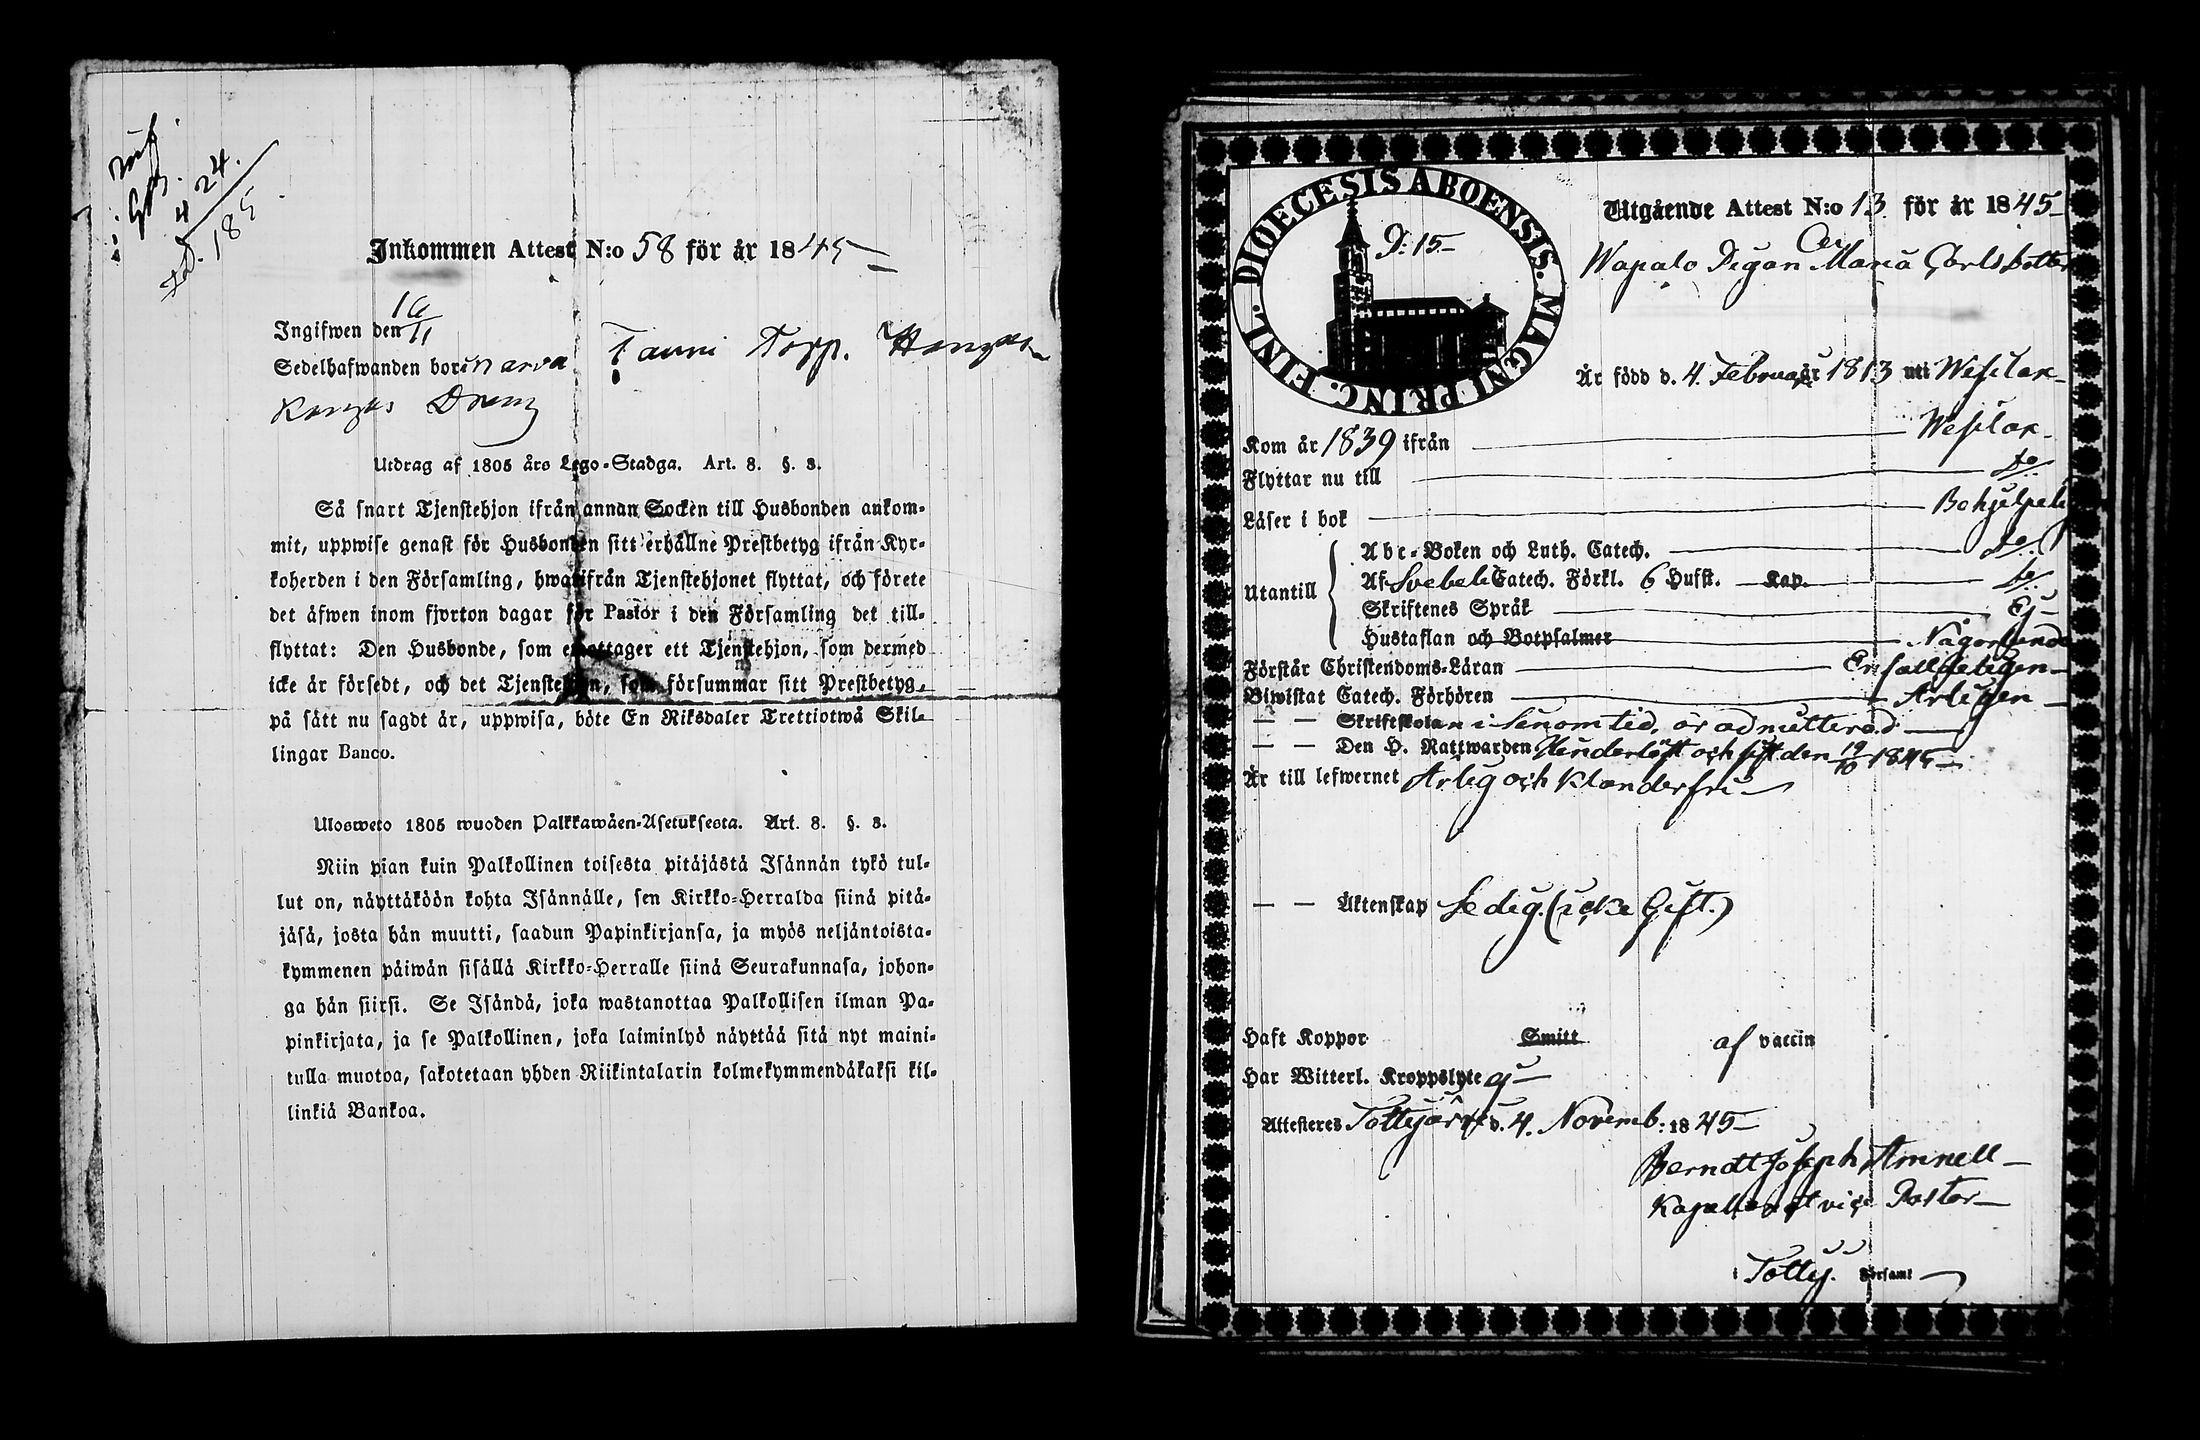 24.
185
Inkommen Attest N:o 58 för år 1845
Ingifwen den 16/11
Sedelhafwanden bor i Torp.
Utdrag af 1805 års Lego-Stadga. Art. 8. §. 3.
Så snart Tjenstehjon ifrån annan Socken till Husbonden ankom-
mit, uppwise genast för Husbonden sitt erhållne Prestbetyg ifrån Kyr-
koherden i den Församling, hwarifrån Tjenstehjonet flyttat, och förete
det äfwen inom fjorton dagar för Pastor i den Församling det till-
flyttat: Den Husbonde, som emottager ett Tjenstehjon, som dermed
icke är försedt, och det Tjenstehjon, som försummar sitt Prestbetyg,
på sätt nu sagdt är, uppwisa, böte En Riksdaler Trettiotwå Skil-
lingar Banco.
Ulosweto 1805 wuoden Palkkawäen-Asetuksesta. Art. 8. §. 3.
Niin pian kuin Palkollinen toisesta pitäjästä Isännän tykö tul-
lut on, näyttäköön kohta Isännälle, sen Kirkko-Herralda siinä pitä-
jäsä, josta hän muutti, saadun Papinkirjansa, ja myös neljäntoista-
kymmenen päiwän sisällä Kirkko-Herralle siinä Seurakunnasa, johon-
ga hän siirsi. Se Isändä, joka wastanottaa Palkollisen ilman Pa-
pinkirjata, ja se Palkollinen, joka laiminlyö näyttää sitä nyt maini-
tulla muotoa, sakotetaan yhden Riikintalarin kolmekymmendäkaksi kil-
linkiä Bankoa.
DIOECESIS ABOENSIS. MAGNI PRINC. FINL.
D: 15
Utgående Attest N:o 13 för år 1845
Wapalo Pigan Maria Carlsdotter
Är född d. 4. Februari 1813 uti Wesilax
Kom år 1839 ifrån Wesilax
Flyttar nu till do
Läser i bok Behjelpelig
Utantill
Abc-Boken och Luth. Catech. do
Af Svebelii Catech. Förkl. 6 Hufst. Kap. do
Skriftenes Språk Ej
Hustaflan och Botpsalmer Någorlunda
Förstår Christendoms-Läran Enfalldeligen
Biwistat Catech. Förhören Årligen
— — Skriftskolan i sinom tid, är admitterad
— — Den H. Nattwarden Hinderlöst och sist den 19/10 1845
Är till lefwernet Ärlig och klanderfri
— — Äktenskap Ledig (icke Gift.)
Haft Koppor Smitt af vaccin
Har Witterl. Kroppslyte ej
Attesteres Tottijärvi d. 4. Novemb: 1845
Berndt Joseph Amnell
Kapellan et vice Pastor
i Tottij. Församl